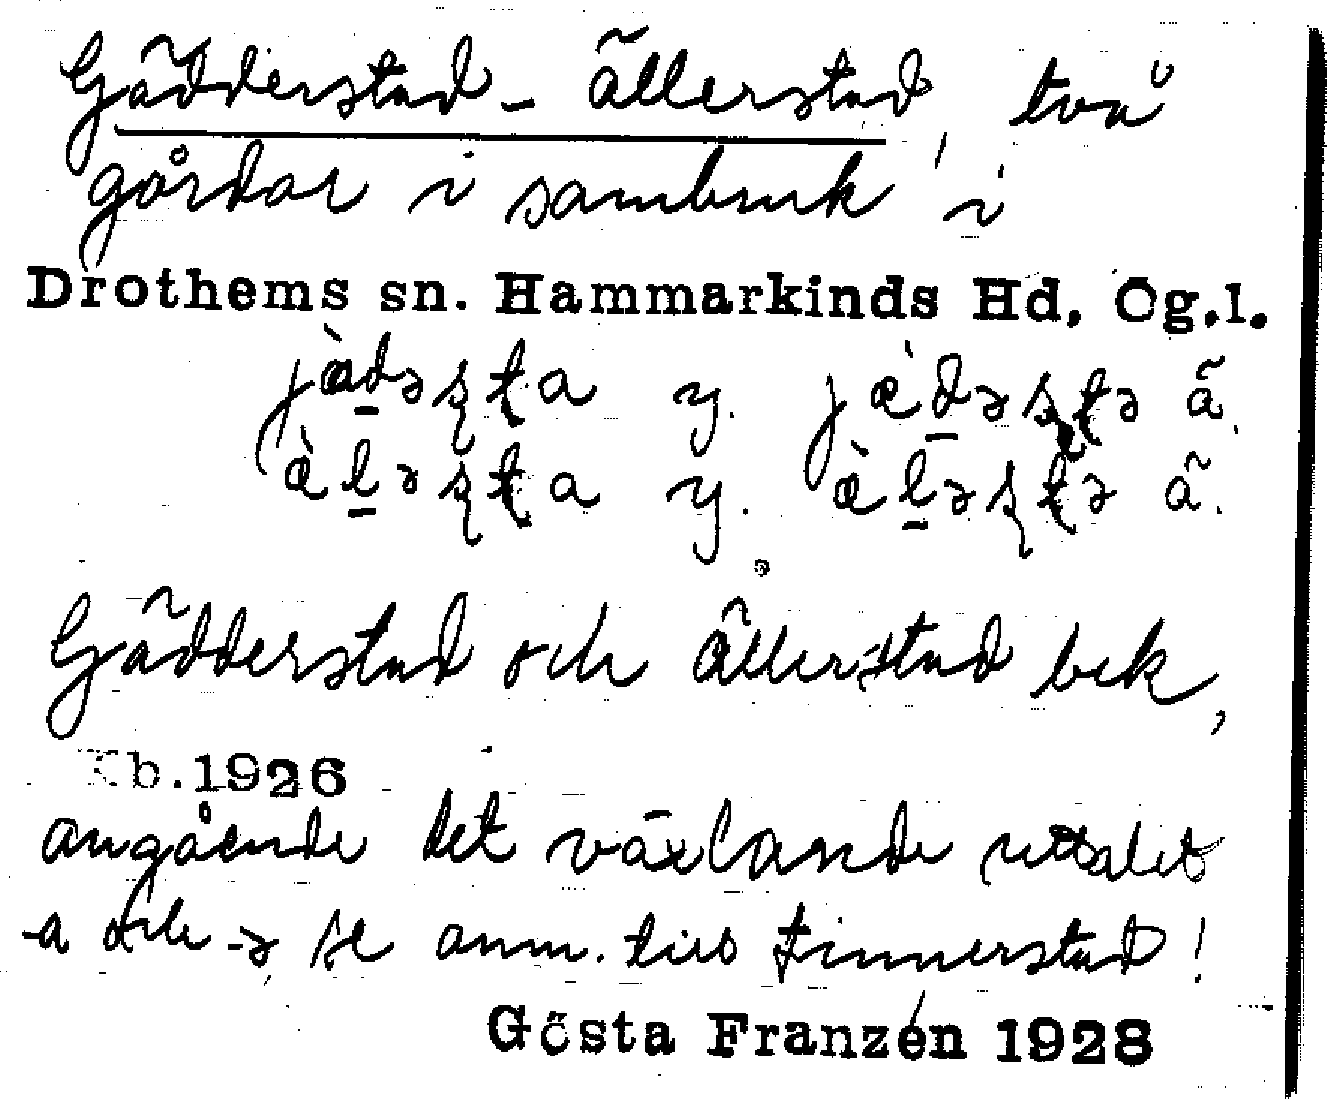 Gädderstad - Ällerstad, två
gårdar i sambruk i
Drothems sn. Hammarkinds Hd, Ög.l.
jæ̀d̠əʂʈa y. jæ̀d̠əʂʈə ä.
æ̀l̠əʂʈa y. æ̀l̠əʂʈə ä.
Gädderstad och Ällerstad bek,
Kb.1926
angående det växlande uttalet
-a och -ə, se anm. till Finnerstad!
Gösta Franzén 1928